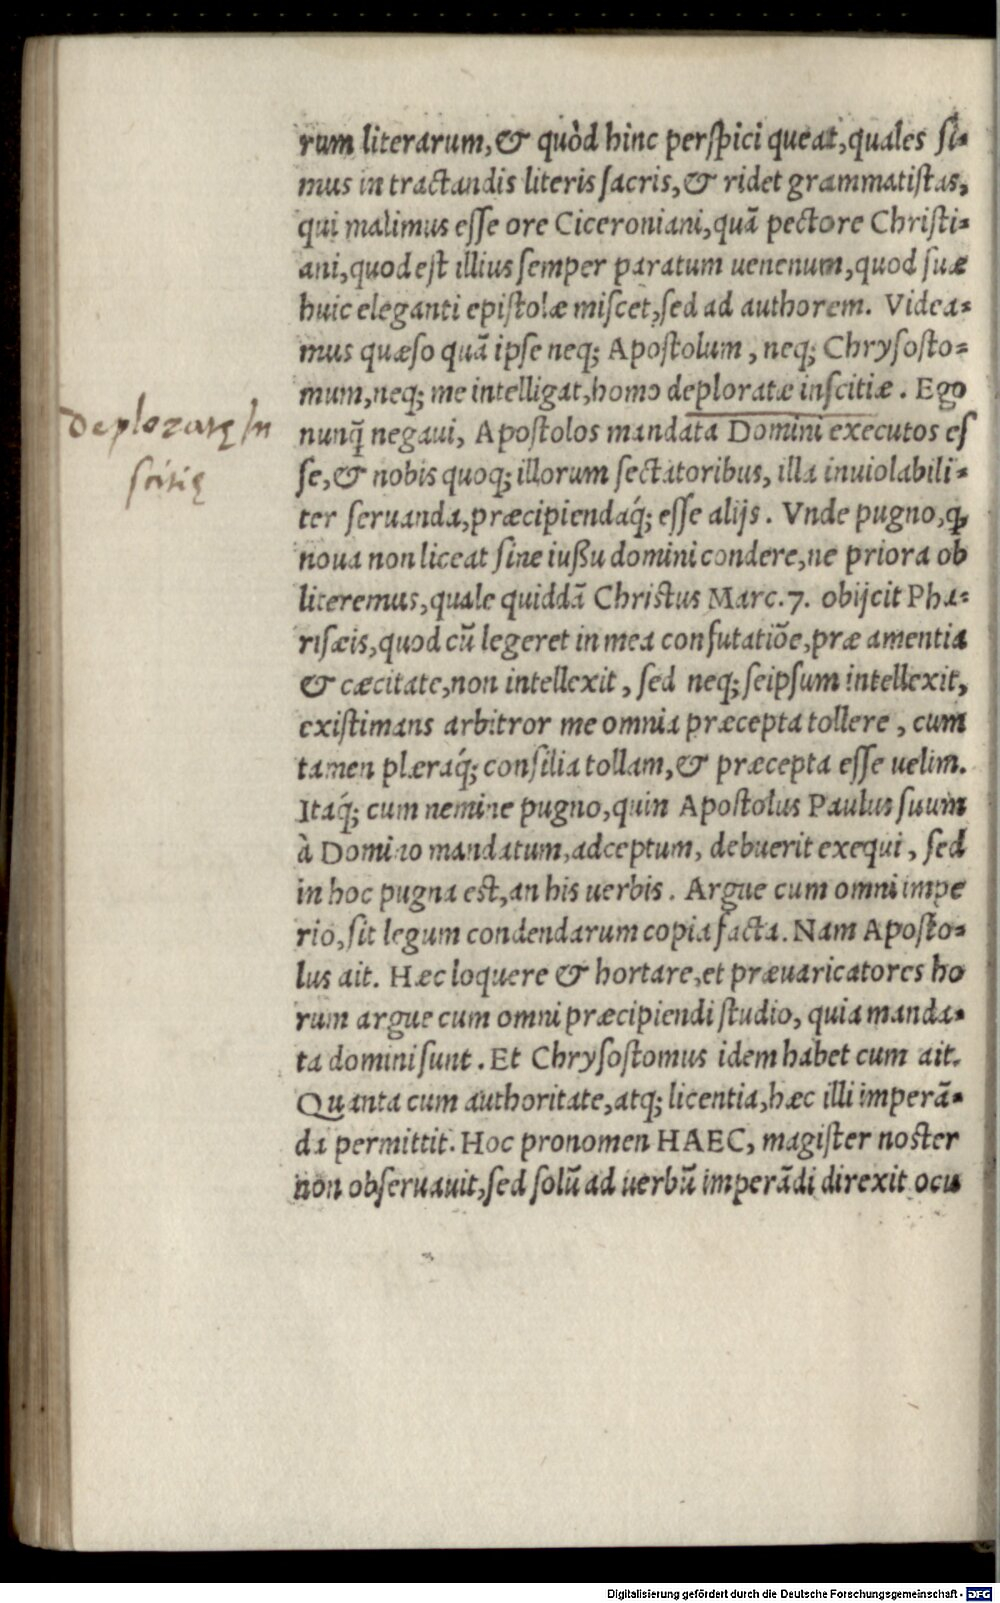 rum literarum, & quòd hinc perſpici queat, quales ſi-
mus in tractandis literis ſacris, & ridet grammatiſtas,
qui malimus eſſe ore Ciceroniani, quã pectore Chriſti-
ani, quod eſt illius ſemper paratum uenenum, quod ſuæ
huic eleganti epiſtolæ miſcet, ſed ad authorem. Videa-
mus quæſo quã ipſe neq; Apoſtolum, neq; Chryſoſto-
mum, neq; me intelligat, homo deploratæ inſcitiæ. Ego
Deploratę In
nunq̃ negaui, Apoſtolos mandata Domini executos eſ
ſcitię
ſe, & nobis quoq; illorum ſectatoribus, illa inuiolabili-
ter ſeruanda, præcipiendaq́; eſſe alijs. Vnde pugno, ꝙ
noua non liceat ſine iußu domini condere, ne priora ob
literemus, quale quiddã Chriſtus Marc. 7. obijcit Pha-
riſæis, quod cũ legeret in mea confutatiõe, præ amentia
& cæcitate, non intellexit, ſed neq; ſeipſum intellexit,
exiſtimans arbitror me omnia præcepta tollere, cum
tamen plæraq́; conſilia tollam, & præcepta eſſe uelim.
Itaq́; cum nemine pugno, quin Apoſtolus Paulus ſuum
à Domino mandatum, adceptum, debuerit exequi, ſed
in hoc pugna eſt, an his uerbis. Argue cum omni impe
rio, ſit legum condendarum copia facta. Nam Apoſto-
lus ait. Hæc loquere & hortare, et præuaricatores ho
rum argue cum omni præcipiendi ſtudio, quia manda-
ta domini ſunt. Et Chryſoſtomus idem habet cum ait.
Quanta cum authoritate, atq; licentia, hæc illi imperã-
da permittit. Hoc pronomen HAEC, magiſter noſter
non obſeruauit, ſed ſolũ ad uerbũ imperãdi direxit ocu
Digitalisierung gefördert durch die Deutsche Forschungsgemeinschaft - DFG